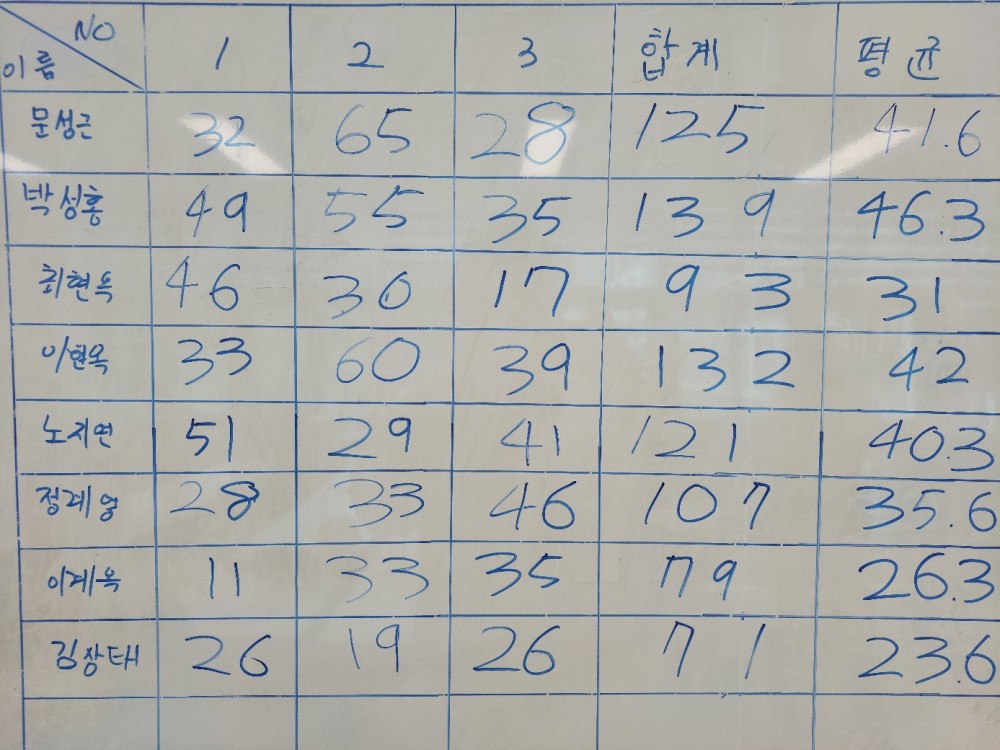 이름 NO 1 2 3 합계 평균
문성근 32 65 28 125 41.6
박성홍 49 55 35 139 46.3
최현옥 46 30 17 93 31
이현옥 33 60 39 132 42
노지연 51 29 41 121 40.3
정계영 28 33 46 107 35.6
이계옥 11 33 35 79 26.3
김상태 26 19 26 71 23.6